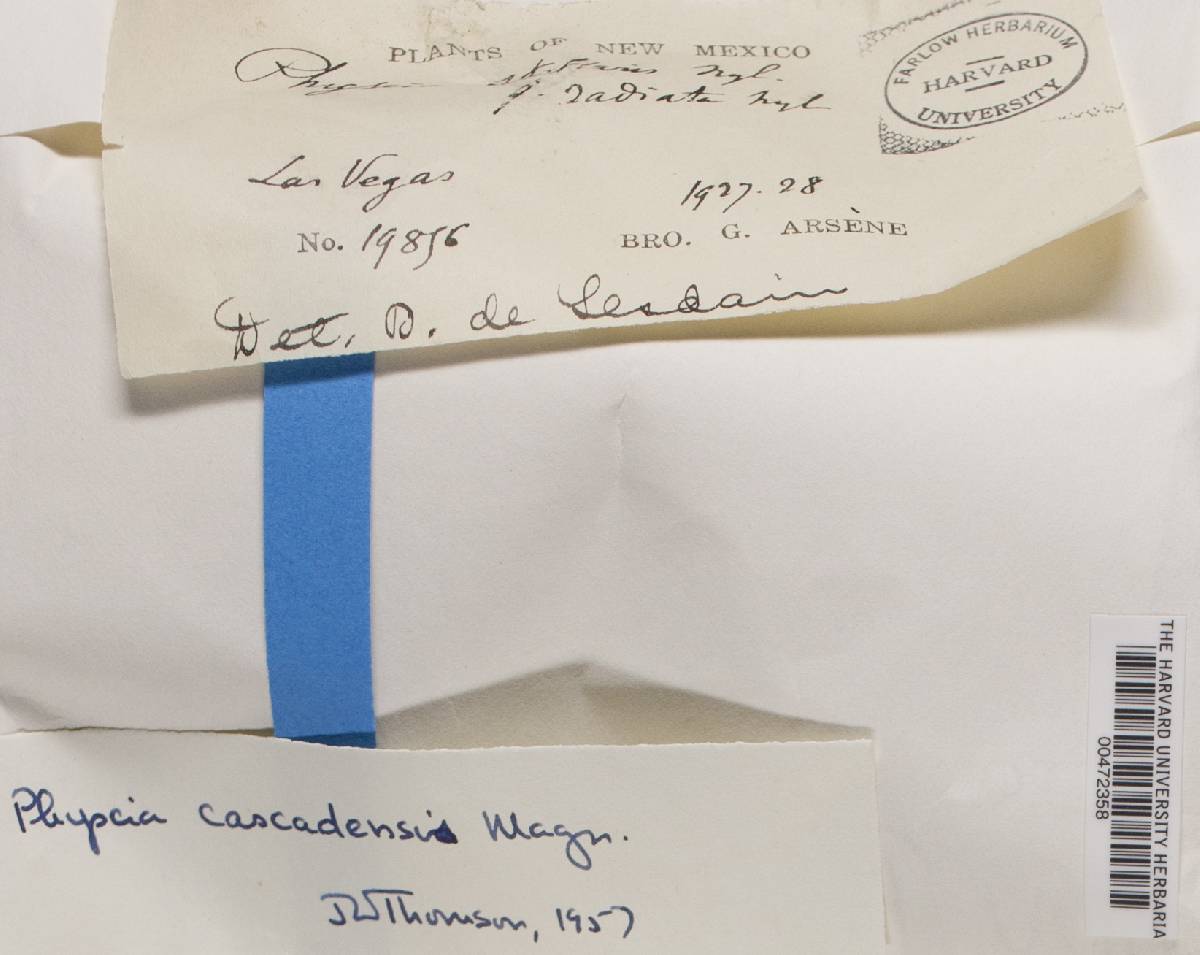 PLANTS OF NEW MEXICO
Physcia nyl.
f. radiata nyl
FARLOW HERBARIUM
HARVARD
UNIVERSITY
Las Vegas 1927-28
No. 19856 BRO. G. ARSÈNE
Det. B. de Lesdain
THE HARVARD UNIVERSITY HERBARIA
00472358
Physcia cascadensis Magn.
JWThomson, 1957